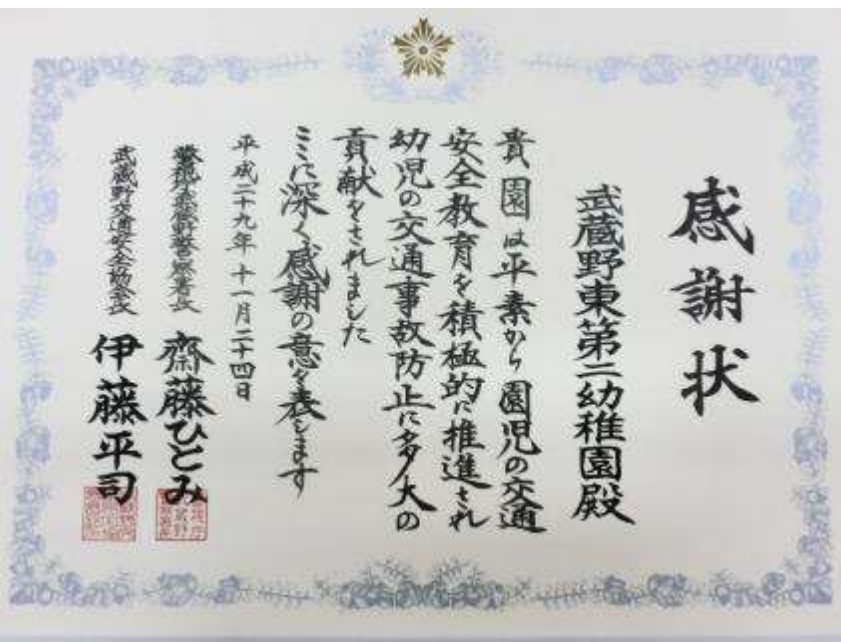 感謝状
武蔵野東第二幼稚園殿
貴園は平素から園児の交通
安全教育を積極的に推進され
幼児の交通事故防止に多大の
貢献をされました
ここに深く感謝の意を表します
平成二十九年十一月二十四日
警視庁武蔵野警察署長 齋藤ひとみ
武蔵野交通安全協会長 伊藤平司